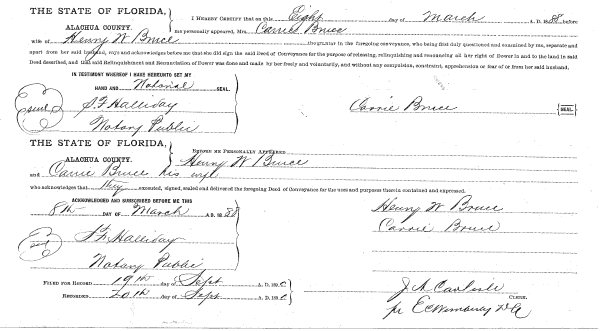 THE STATE OF FLORIDA,
ALACHUA COUNTY.
I HEREBY CERTIFY that on this Eight day of March A. D. 1888, before
me personally appeared, Mrs. Carrie Bruce
wife of Henry W Bruce the grantor in the foregoing conveyance, who being first duly questioned and examined by me, separate and
apart from her said husband, says and acknowledges before me that she did sign the said Deed of Conveyance for the purpose of releasing, relinquishing and renouncing all her right of Dower in and to the land in said
Deed described, and that said Relinquishment and Renunciation of Dower was done and made by her freely and voluntarily, and without any compulsion, constraint, apprehension or fear of or from her said husband.
IN TESTIMONY WHEREOF I HAVE HEREUNTO SET MY
HAND AND Notarial SEAL.
seal S. F. Halliday Carrie Bruce SEAL.
Notary Public
THE STATE OF FLORIDA,
ALACHUA COUNTY.
BEFORE ME PERSONALLY APPEARED
Henry W Bruce
and Carrie Bruce his wife
who acknowledges that they executed, signed, sealed and delivered the foregoing Deed of Conveyance for the uses and purposes therein contained and expressed.
ACKNOWLEDGED AND SUBSCRIBED BEFORE ME THIS
8th DAY OF March A. D. 1888 Henry W Bruce
Carrie Bruce
seal S. F. Halliday
Notary Public
FILED FOR RECORD 19th day of Sept A. D. 189
RECORDED 20th day of Sept A. D. 189
J. A. Carlisle
CLERK.
pr